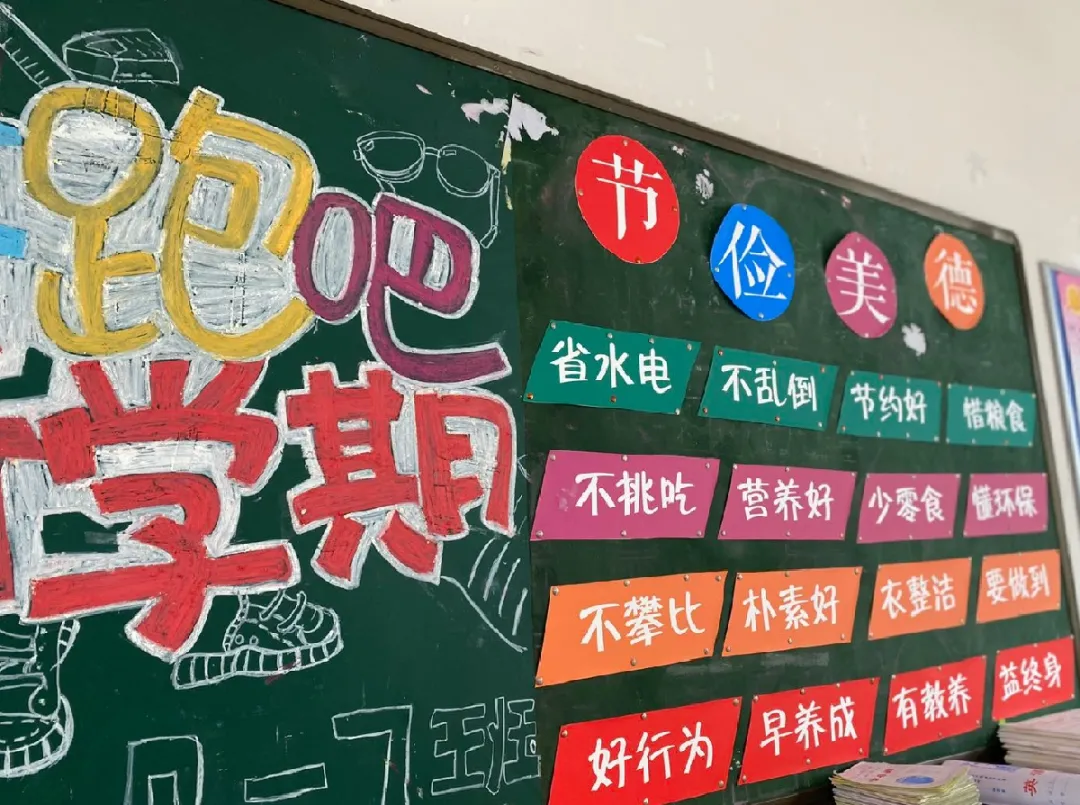 跑吧
学期
班
节俭美德
省水电 不乱倒 节约好 惜粮食
不挑吃 营养好 少零食 懂环保
不攀比 朴素好 衣整洁 要做到
好行为 早养成 有教养 益终身